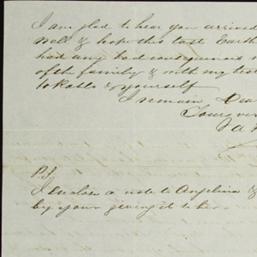 I am glad to hear you arrived
well & hope this last Earth
had any bad consequences
of the family & with my best
to Katte & yourself
I remain Dear
Yours very
P.S.
I enclose a note to Angelina &
by your giving it to her